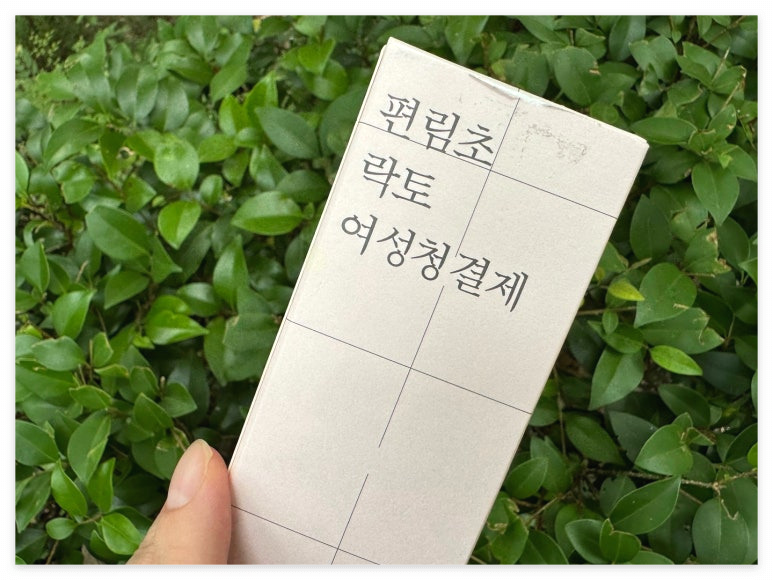 편림초
락토
여성청결제